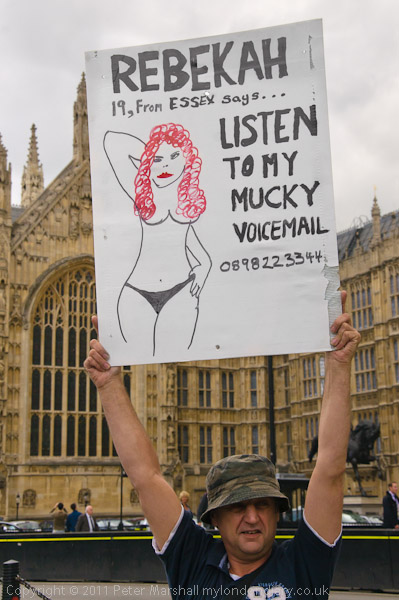 REBEKAH
19, From ESSEX says...
LISTEN
TO MY
MUCKY
VOICEMAIL
0898223344
Copyright © 2011 Peter Marshall mylondondiary.co.uk